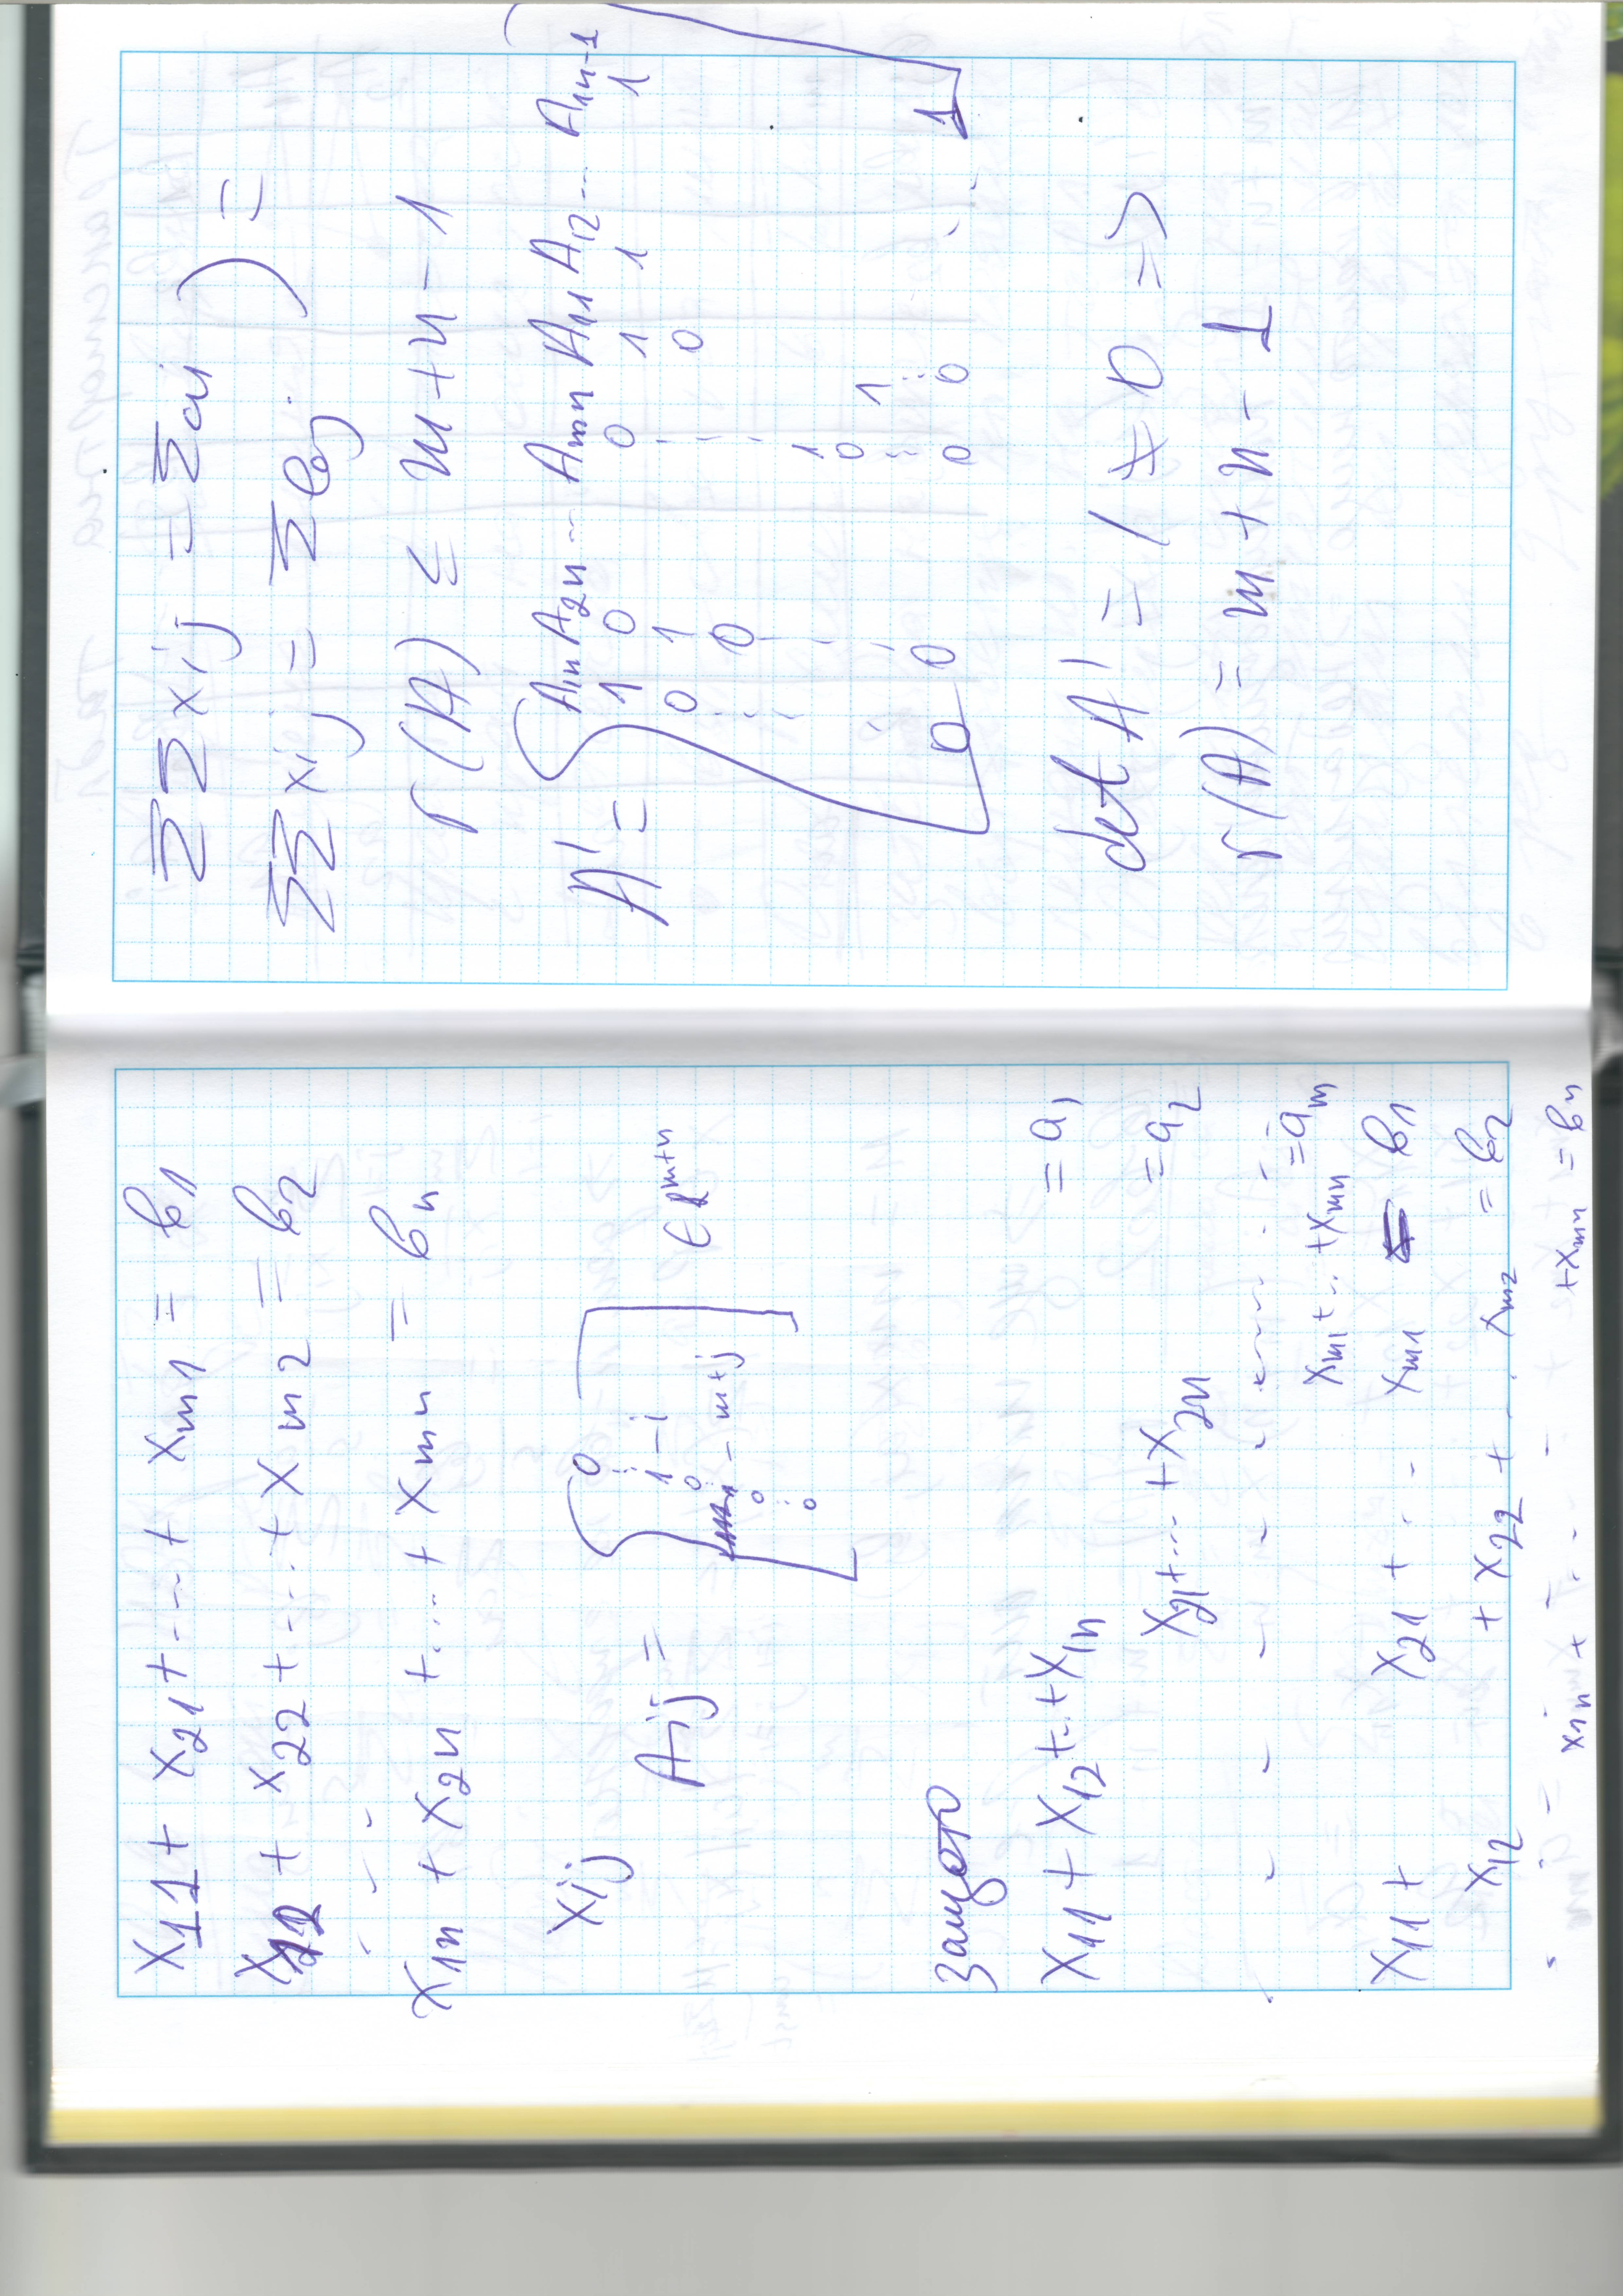 x11 + x21 + ... + xm1 = b1
x12 + x22 + ... + xm2 = b2
x1n + x2n + ... + xmn = bn
xij
Aij = [ 0 ⋮ 1 – i 0 1 – m+j 0 ⋮ 0 ] ∈ R^m+n
защото
x11 + x12 + ... + x1n = a1
x21 + ... + x2n = a2
xm1 + ... + xmn = am
x11 + x21 + ... xm1 = b1
x12 + x22 + ... xm2 = b2
x1n + ... + xmn = bn
ΣΣ xij = Σai ) =
ΣΣ xij = Σbj
r(A) ≤ m+n-1
A1n A2n ... Amn A11 A12 ... A1n-1
A' = [ 1 0 0 1 1 1
0 1 0
0
1
0 1
0 0 0 0 1 ]
det A' = 1 ≠ 0 =>
r(A) = m+n-1